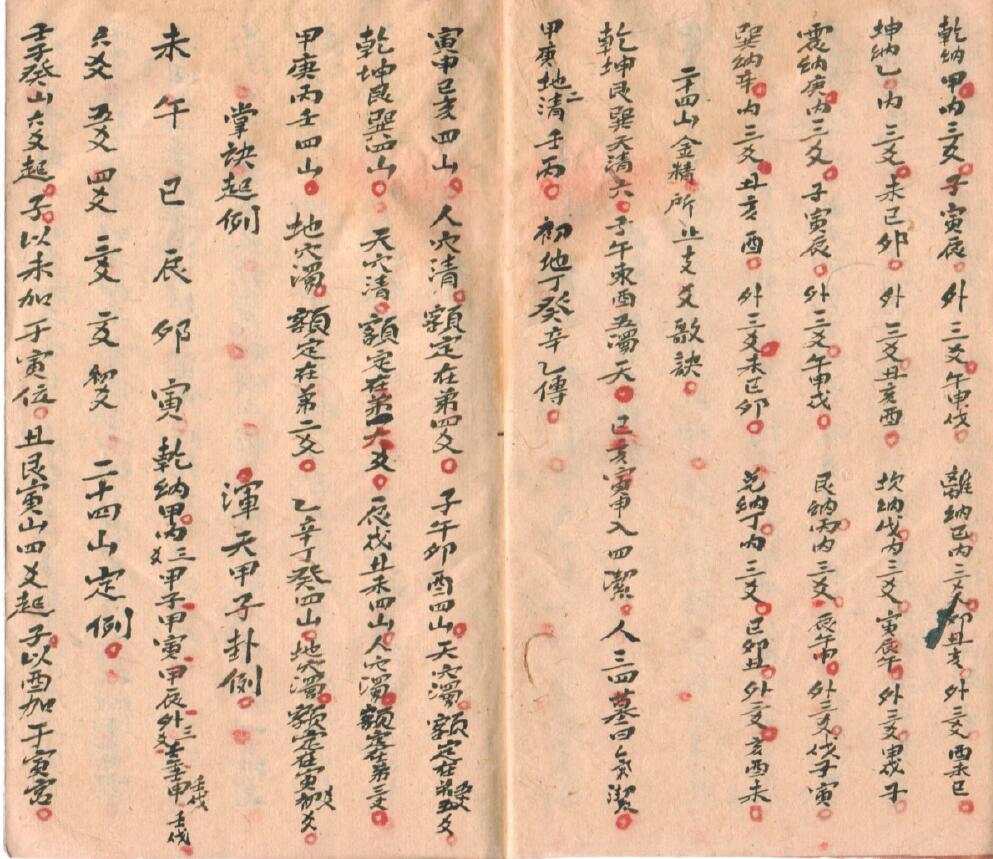 乾納甲内三爻子寅辰外三爻午申戌離納己内三爻卯丑亥外三爻酉未巳
坤納乙内三爻未巳卯外三爻丑亥酉坎納戊内三爻寅辰午外三爻申戌子
震納庚内三爻子寅辰外三爻午申戌艮納丙内三爻辰午申外三爻戌子寅
巽納辛内三爻丑亥酉外三爻未巳卯兑納丁内三爻巳卯丑外三爻亥酉未
二十四山金精所止支爻歌訣
乾坤艮巽天清六子午卯酉五濁天巳亥寅申人四潔人三四墓曰氣濁
甲庚地二清壬丙初地丁癸辛乙傳
寅申巳亥四山人穴清額定在第四爻子午卯酉四山天穴濁額定在第五爻
乾坤艮巽四山天穴清額定在第六爻辰戌丑未四山人穴濁額定在第三爻
甲庚丙壬四山地穴濁額定在第二爻乙辛丁癸四山地穴濁額定在寅初爻
掌訣起例 渾天甲子卦例
未午巳辰卯寅乾納甲内三爻甲子甲寅甲辰外三爻壬午壬申壬戌
六爻五爻四爻三爻二爻初爻二十四山定例
壬子癸山六爻起子以未加于寅位丑艮寅山四爻起子以酉加于寅宫